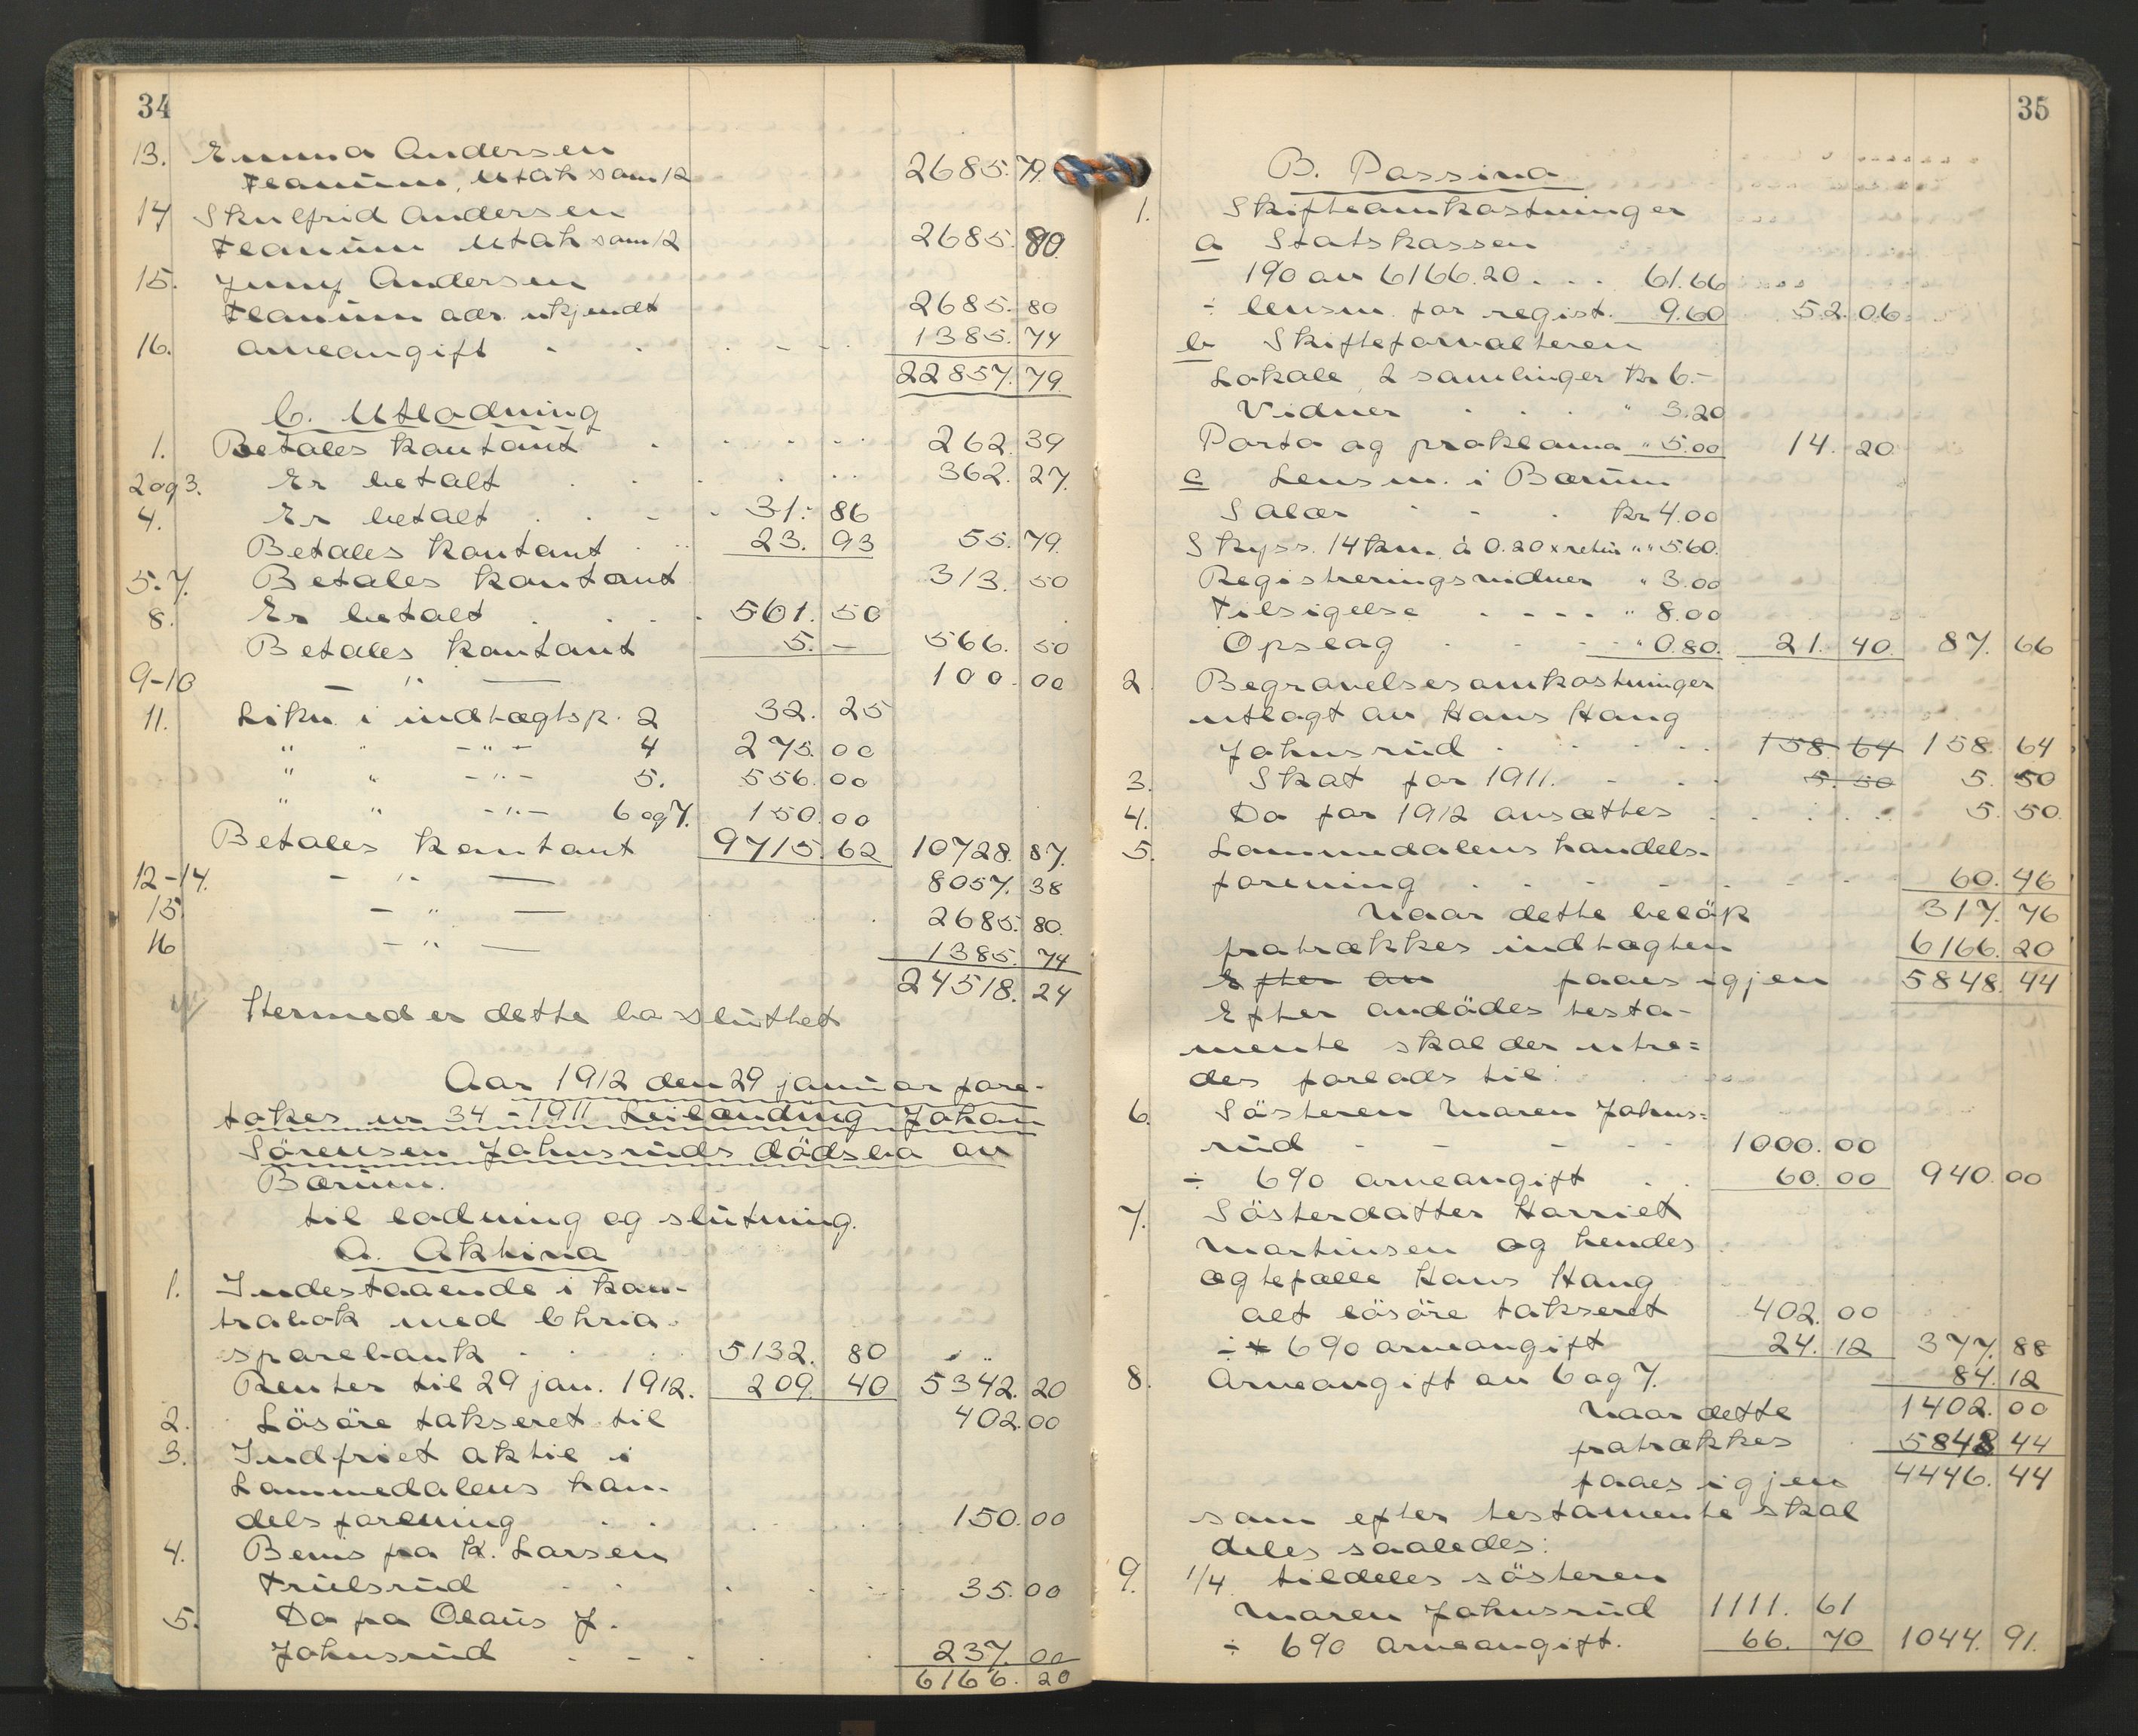 34
13. Emma Andersen
Franum, Utah som 12 2685. 79.
14 Skulfrid Andersen
Utah som 12 2685. 80
15. Jenny Andersen
adr. ukjendt 2685. 80
16. Arveavgift 1385. 74
22857. 79.
C. Utlodning
1. Betales kontant 262. 39
2 og 3. Er betalt 362. 27.
4. Er betalt 31. 86
Betales kontant 23. 93 55. 79.
5. 7. Betales kontant 313. 50
8. Er betalt 561. 50
Betales kontant 5. — 566. 50
9-10 — " — 100. 00
11. Likn. i indtægtsp. 2 32. 25
" " — " — 4 275. 00
" " — " — 5. 556. 00
" " — " — 6 og 7. 150. 00
Betales kontant 9715. 62 10728. 87.
12-14. — " — 8057. 38
15. — " — 2685. 80.
16 — " — 1385. 74
24518. 24
Hermed er dette bo sluttet
Aar 1912 den 29 januar fore-
tokes nr 34-1911 Leilænding Johan
Sörensen Johnsruds dödsbo av
Bærum.
til lodning og slutning.
A. Aktiva
1. Indestaaende i kon-
trabok med Chria.
sparebank 5132. 80
Renter til 29 jan. 1912. 209. 40 5342. 20
2. Lösöre takseret til 402. 00
3. Indfriet aktie i
Lommedalens han-
delsforening 150. 00
4. Bevis fra K. Larsen
Trulsrud 35. 00
5. Do fra Olaus J.
Johnsrud 237. 00
6166. 20
35
B. Passiva
1. Skifteomkostninger
a Statskassen
1% av 6166.20 . . . 61.66
÷ lensm. for regist. 9.60 52. 06
b Skifteforvalteren
Lokale, 2 samlinger kr 6.-
Vidner " 3.20
Porto og proklama " 5.00 14. 20
c Lensm. i Bærum
Salær kr 4.00
Skyss. 14 km. à 0.20 x retur " 5.60.
Registreringsvidner " 3.00
Tilsigelse " 8.00
Opslag " 0.80. 21. 40. 87. 66
2. Begravelsesomkostninger
utlagt av Hans Haug
Johnsrud 158. 64 158. 64
3. Skat for 1911. 5. 50 5. 50
4. Do for 1912 ansættes 5. 50.
5. Lommedalens handels-
forening 60. 46
Naar dette belöp 317. 76
fratrækkes indtægten 6166. 20
Efter av faaes igjen 5848. 44
Efter avdödes testa-
mente skal der utre=
des forlods til:
6. Sösteren Maren Johns=
rud 1000. 00
÷ 6% arveavgift 60. 00 940. 00
7. Sösterdatter Harriet
Martinsen og hendes
ægtefælle Hans Haug
alt lösöre takseret 402. 00
÷ 6% arveavgift 24. 12 377. 88
8. Arveavgift av 6 og 7. 84. 12
Naar dette 1402. 00
fratrækkes 5848 44
faaes igjen 4446. 44
som efter testamente skal
deles saaledes:
9. 1/4 tildeles sösteren
Maren Johnsrud 1111. 61
÷ 6% arveavgift. 66. 70 1044. 91.